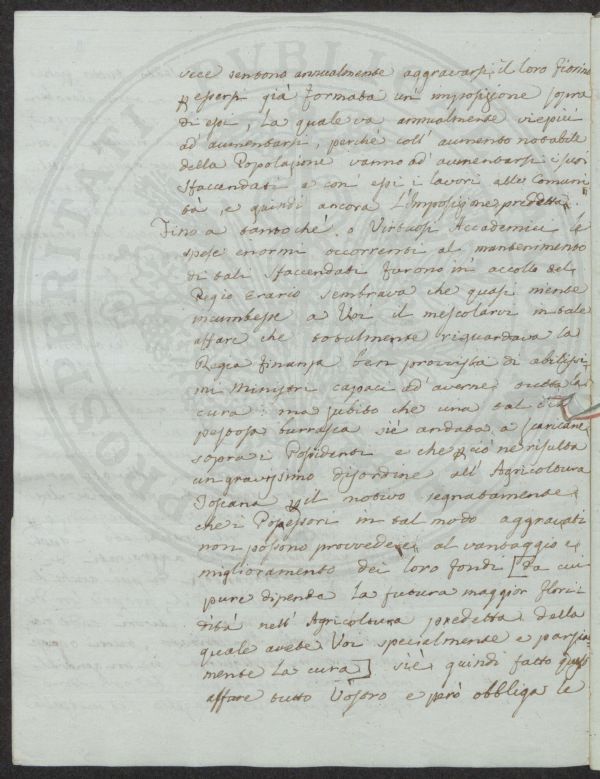 vece sentono annualmente aggravarsi il loro fiorino
p essersi già formata un' imposizione sopra
di essi, la quale va annualmente viepiù
ad' aumentarsi, perchè coll' aumento notabile
della Popolazione vanno ad' aumentarsi i suoi
sfacendati e con' essi i lavori alle Comuni
tà, e quindi ancora l'Imposizione predetta.
Fino a tanto chè o Virtuosi Accademici le
spese enormi occorrenti al mantenimento
di tali sfacendati furono in' accollo del
Regio Erario sembrava che quasi niente
incumbesse a Voi il mescolarvi in tale
affare che totalmente riguardava la
Regia Finanza ben provvista di abilissi
mi Ministri capaci ad' averne tutta la
cura: ma subito che una tal
pestosa burrasca siè andata a scaricare
sopra i Possidenti e che p ciò ne risulta
un gravissimo disordine all' Agricoltura
Toscana p il motivo segnatamente
che i Possessori in tal modo aggravati
non possono provvedere al vantaggio e
miglioramento dei loro fondi [Da cui
pure dipende la futura maggior flori
dità nell' Agricoltura predetta della
quale avete Voi specialmente e parzial
mente la cura] siè quindi fatto quest
affare tutto Vostro e però obbliga le
PROSPERITATI PVBLICAE